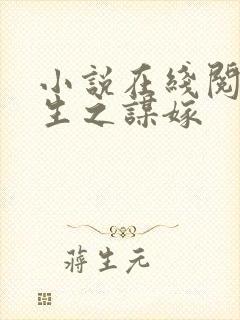 小説在綫閱
生之謀嫁
蔣生元